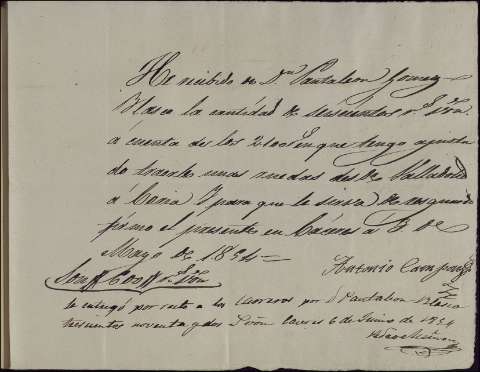 He recibido de Dn Pantaleon Gomez
Blasco la cantidad de seiscientos rs. Von.
á cuenta de los 2100 en que tengo ajusta
do traerle unas ruedas desde Valladolid
á Coria y para que le sirva de resguardo
firmo el presente en Cáceres á 5 de
Mayo de 1834=
Antonio Campau
Son # 600 # rs. Von
Se entregó por resto a los por D Pantaleon Blasco
trescientos noventa y dos rs. von. Caceres 6 de Junio de 1834